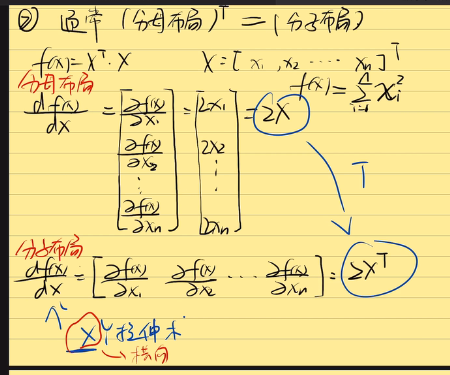 ② 通常 (分母布局)ᵀ = (分子布局)
f(x) = Xᵀ·X X = [x₁, x₂ ⋯ xₙ]ᵀ
分母布局 f(x) = ∑ᵢ₌₁ⁿ xᵢ²
df(x)/dX = [∂f(x)/∂x₁ ∂f(x)/∂x₂ ⋮ ∂f(x)/∂xₙ] = [2x₁ 2x₂ ⋮ 2xₙ] = 2X
T
分子布局
df(x)/dX = [∂f(x)/∂x₁ ∂f(x)/∂x₂ ⋯ ∂f(x)/∂xₙ] = 2Xᵀ
X 拉伸术
横向